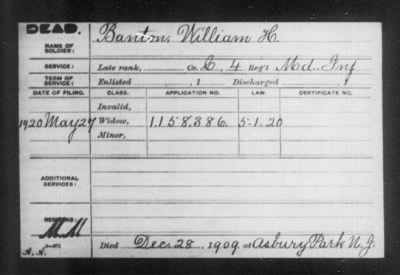 DEAD.
NAME OF SOLDIER: Banton, William H.
SERVICE: Late rank, Co. C, 4 Reg't Md. Inf
TERM OF SERVICE: Enlisted , 1 Discharged , 1
DATE OF FILING. CLASS. APPLICATION NO. LAW. CERTIFICATE NO.
Invalid,
1920 May 27 Widow, 1.158.386. 5-1-20
Minor,
ADDITIONAL SERVICES:
REMARKS:
MM
Died Dec. 28, 1909, at Asbury Park N.J.